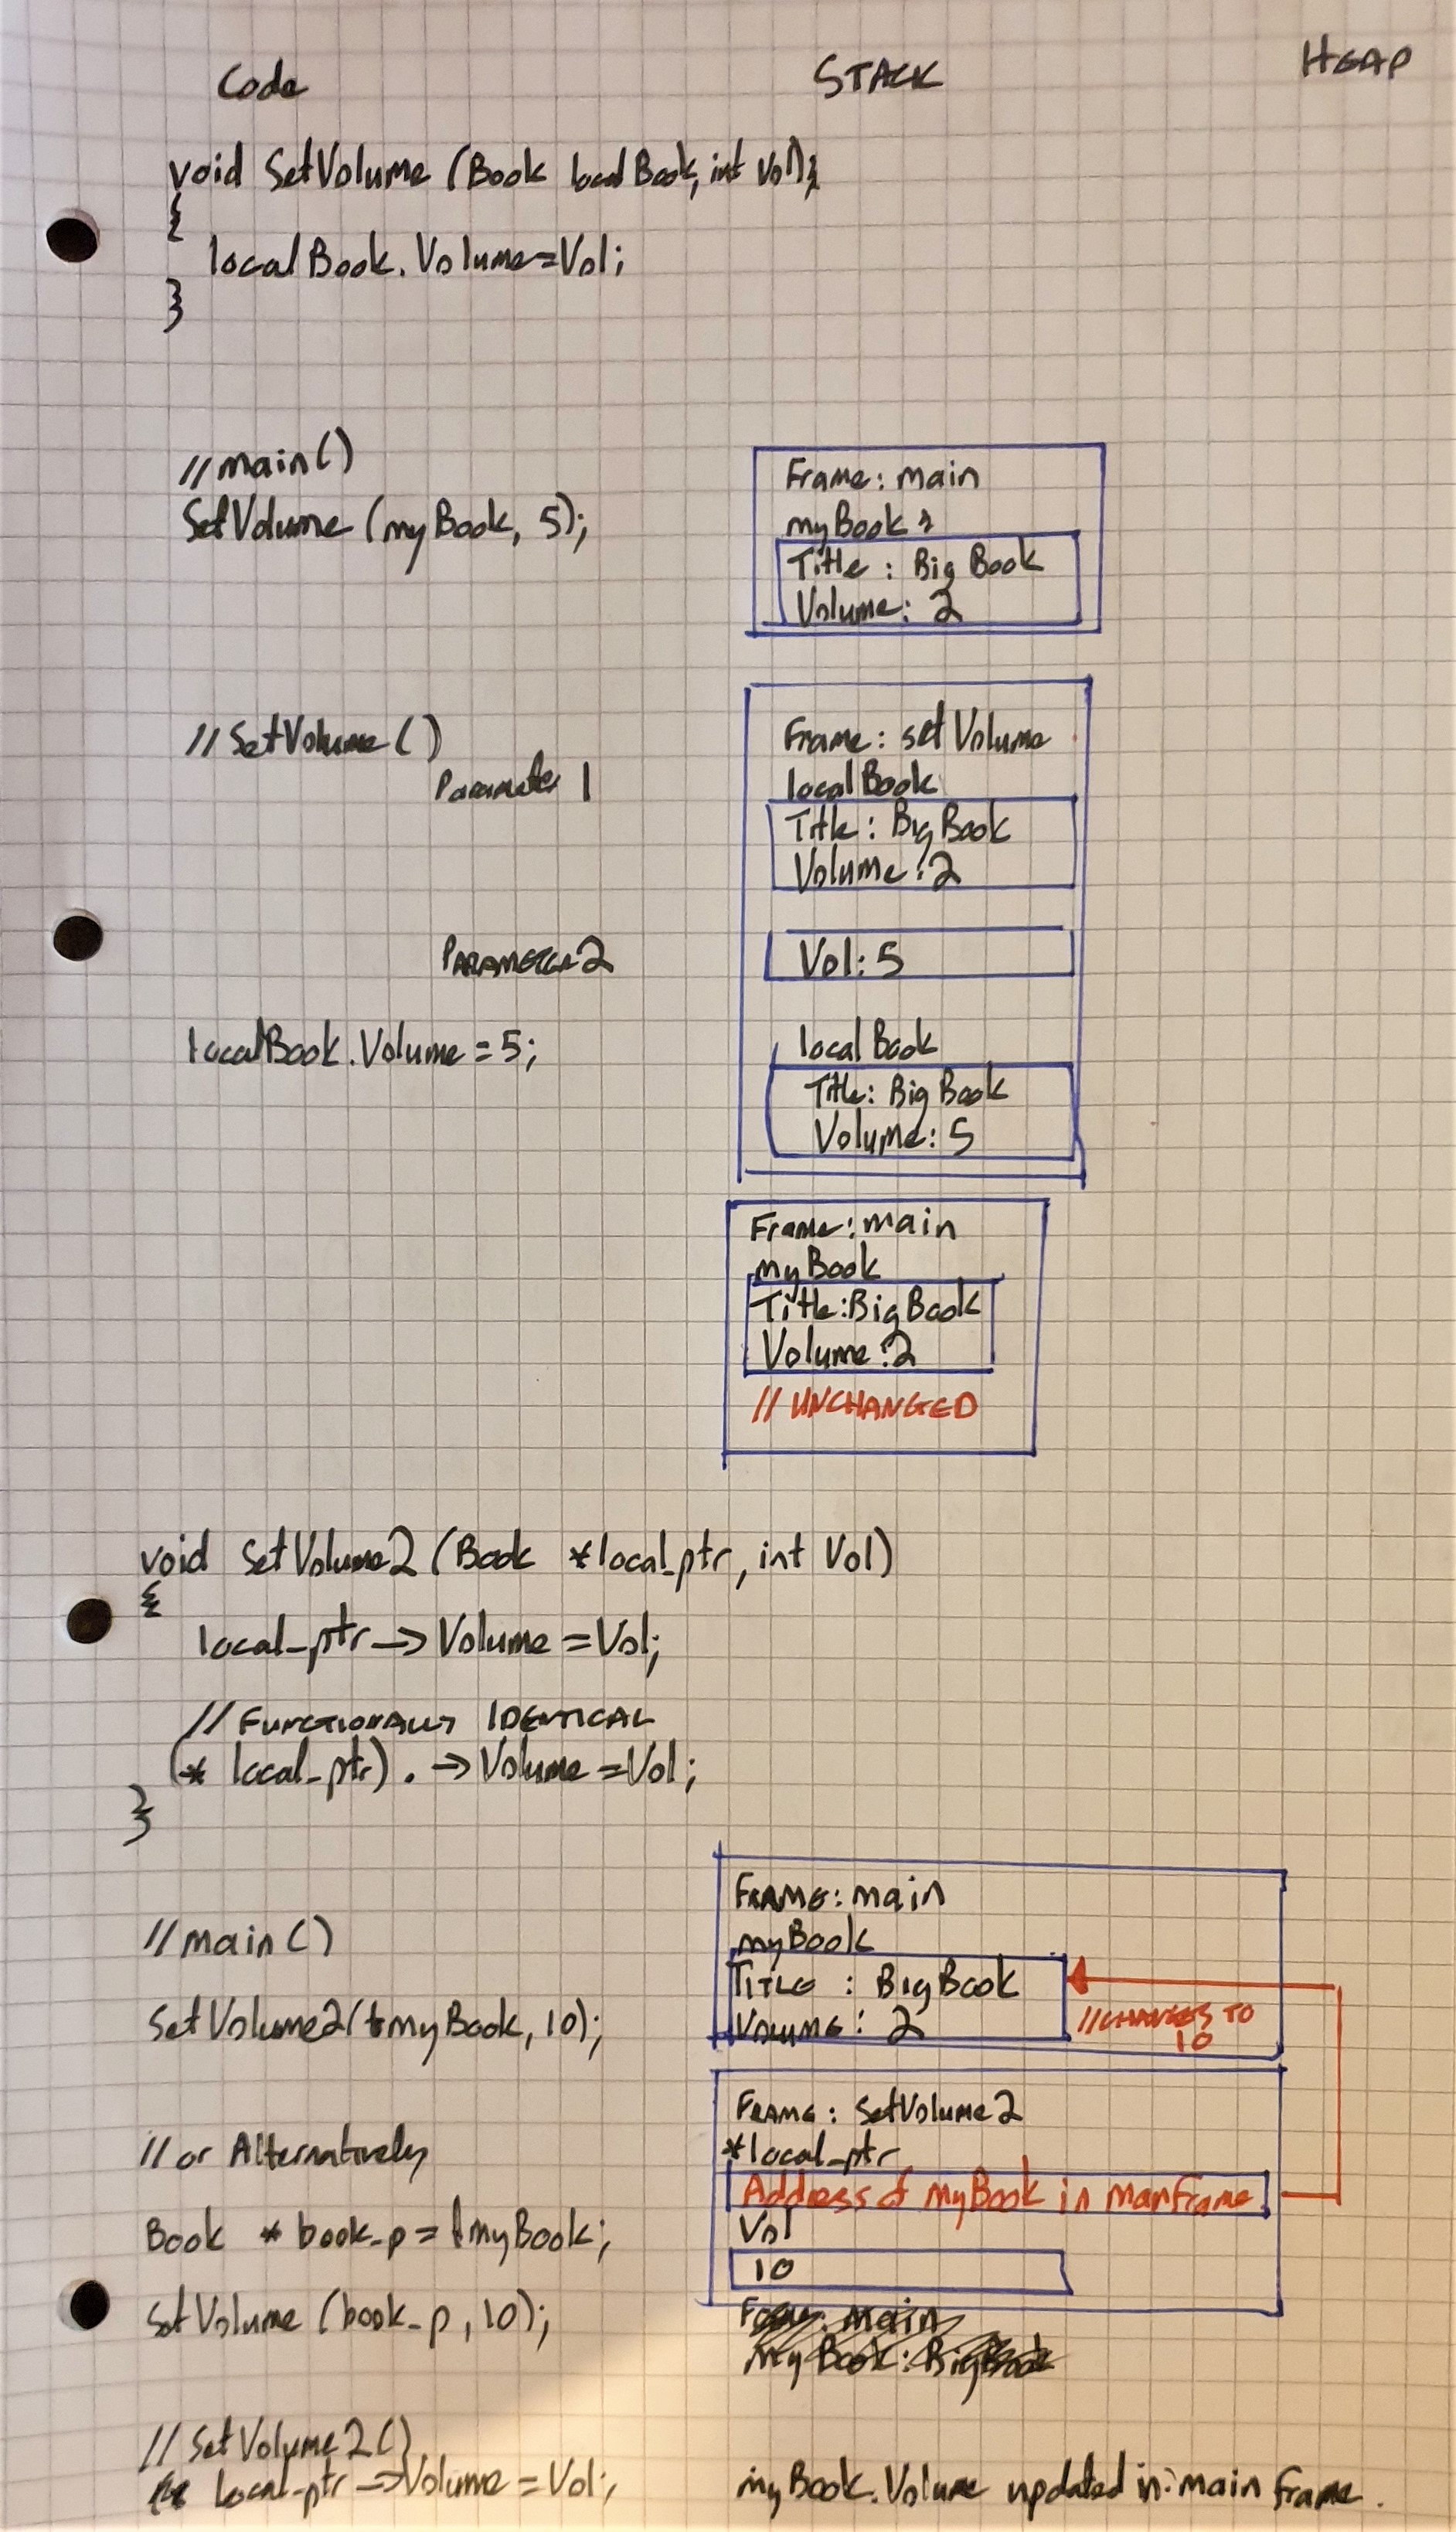 Code STACK HEAP
void SetVolume (Book localBook, int Vol);
{
localBook.Volume=Vol;
}
//main()
SetVolume (myBook, 5);
Frame: main
myBook:
Title : Big Book
Volume: 2
//SetVolume()
Parameter 1
Frame: setVolume
localBook
Title: Big Book
Volume: 2
PARAMETER 2
Vol: 5
localBook.Volume = 5;
localBook
Title: Big Book
Volume: 5
Frame: main
myBook
Title: Big Book
Volume: 2
// UNCHANGED
void SetVolume2 (Book *local_ptr, int Vol)
{
local_ptr -> Volume = Vol;
// FUNCTIONALLY IDENTICAL
(* local_ptr) . -> Volume = Vol;
}
//main()
SetVolume2(&myBook, 10);
FRAME: main
myBook
TITLE : BigBook
VOLUME: 2
//CHANGES TO
10
//or Alternatively
Book * book_p = &myBook;
SetVolume (book_p, 10);
FRAME: SetVolume2
*local_ptr
Address of myBook in Main Frame
Vol
10
Frame: main
myBook: BigBook
// SetVolume2()
local_ptr -> Volume = Vol;
myBook.Volume updated in main frame.